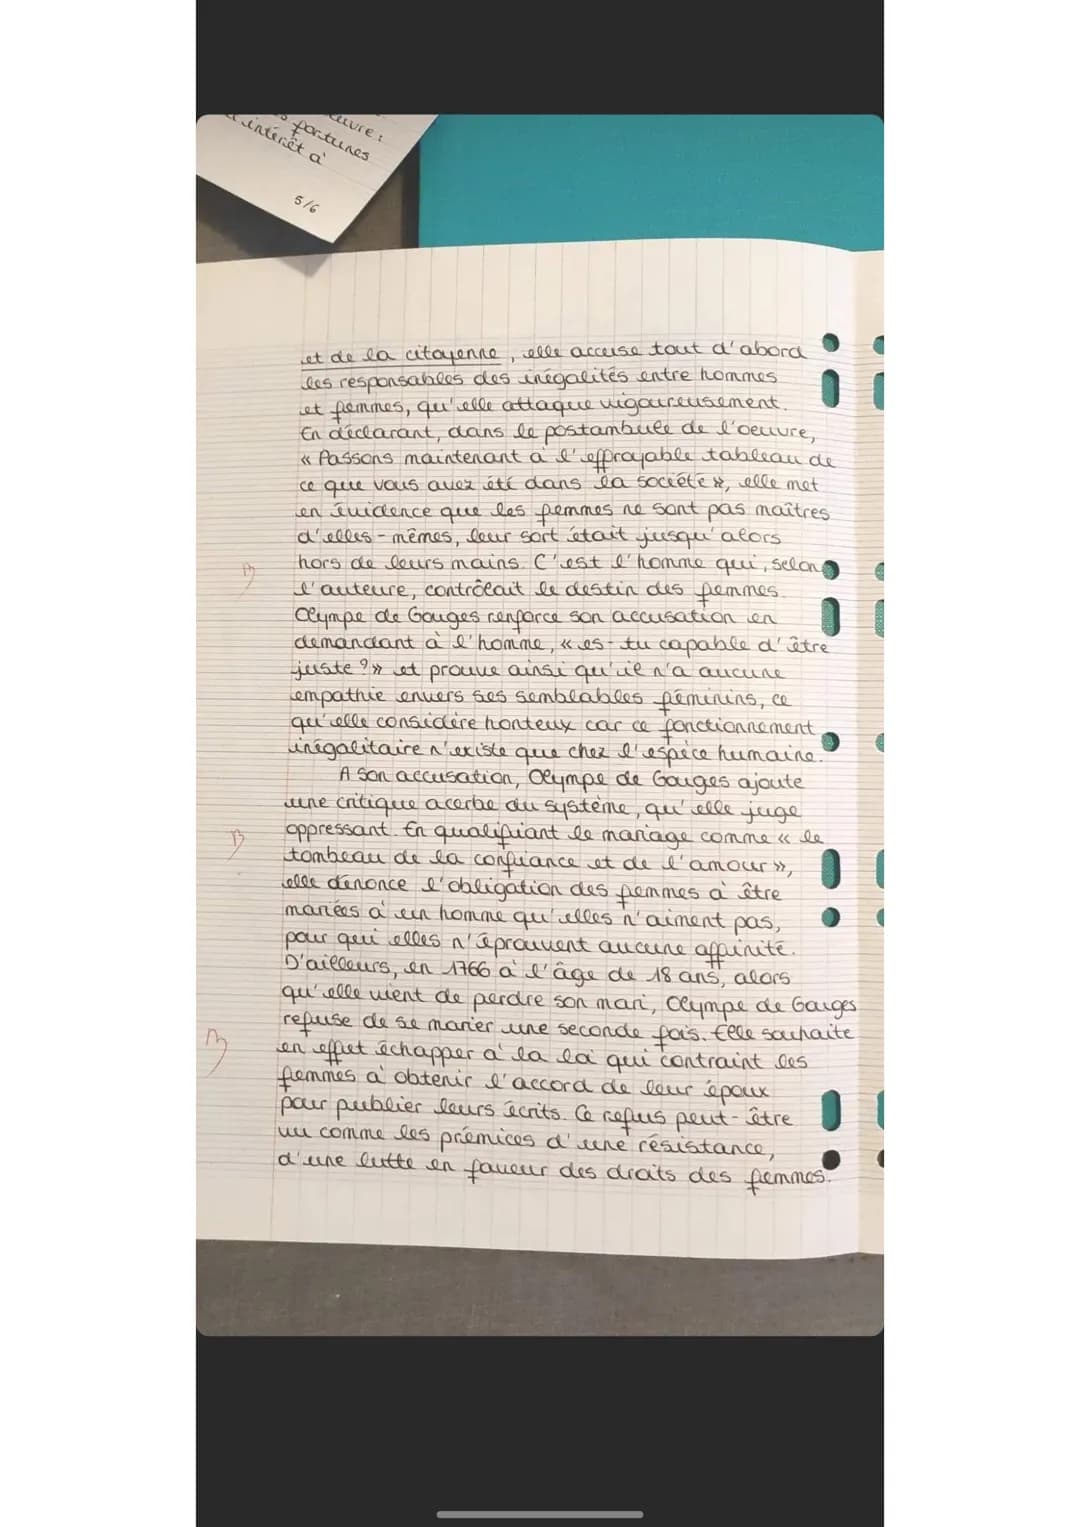 euvre :
s fortunes
intérêt à
5/6
et de la citoyenne, elle accuse tout d'abord
les responsables des inégalités entre hommes
et femmes, qu'elle attaque vigoureusement.
En déclarant, dans le postambule de l'oeuvre,
« Passons maintenant à l'effroyable tableau de
ce que vous avez été dans la société », elle met
en évidence que les femmes ne sont pas maîtres
d'elles-mêmes, leur sort était jusqu'alors
hors de leurs mains. C'est l'homme qui, selon
B
l'auteure, contrôlait le destin des femmes.
Olympe de Gouges renforce son accusation en
demandant à l'homme, « es-tu capable d'être
juste ? » et prouve ainsi qu'il n'a aucune
empathie envers ses semblables féminins, ce
qu'elle considère honteux car ce fonctionnement
inégalitaire n'existe que chez l'espèce humaine.
A son accusation, Olympe de Gouges ajoute
une critique acerbe du système, qu'elle juge
B
oppressant. En qualifiant le mariage comme « le
tombeau de la confiance et de l'amour »,
elle dénonce l'obligation des femmes à être
mariées à un homme qu'elles n'aiment pas,
pour qui elles n'éprouvent aucune affinité.
D'ailleurs, en 1766 à l'âge de 18 ans, alors
qu'elle vient de perdre son mari, Olympe de Gouges
refuse de se marier une seconde fois. Elle souhaite
B
en effet échapper à la loi qui contraint les
femmes à obtenir l'accord de leur époux
pour publier leurs écrits. Ce refus peut-être
vu comme les prémices d'une résistance,
d'une lutte en faveur des droits des femmes.